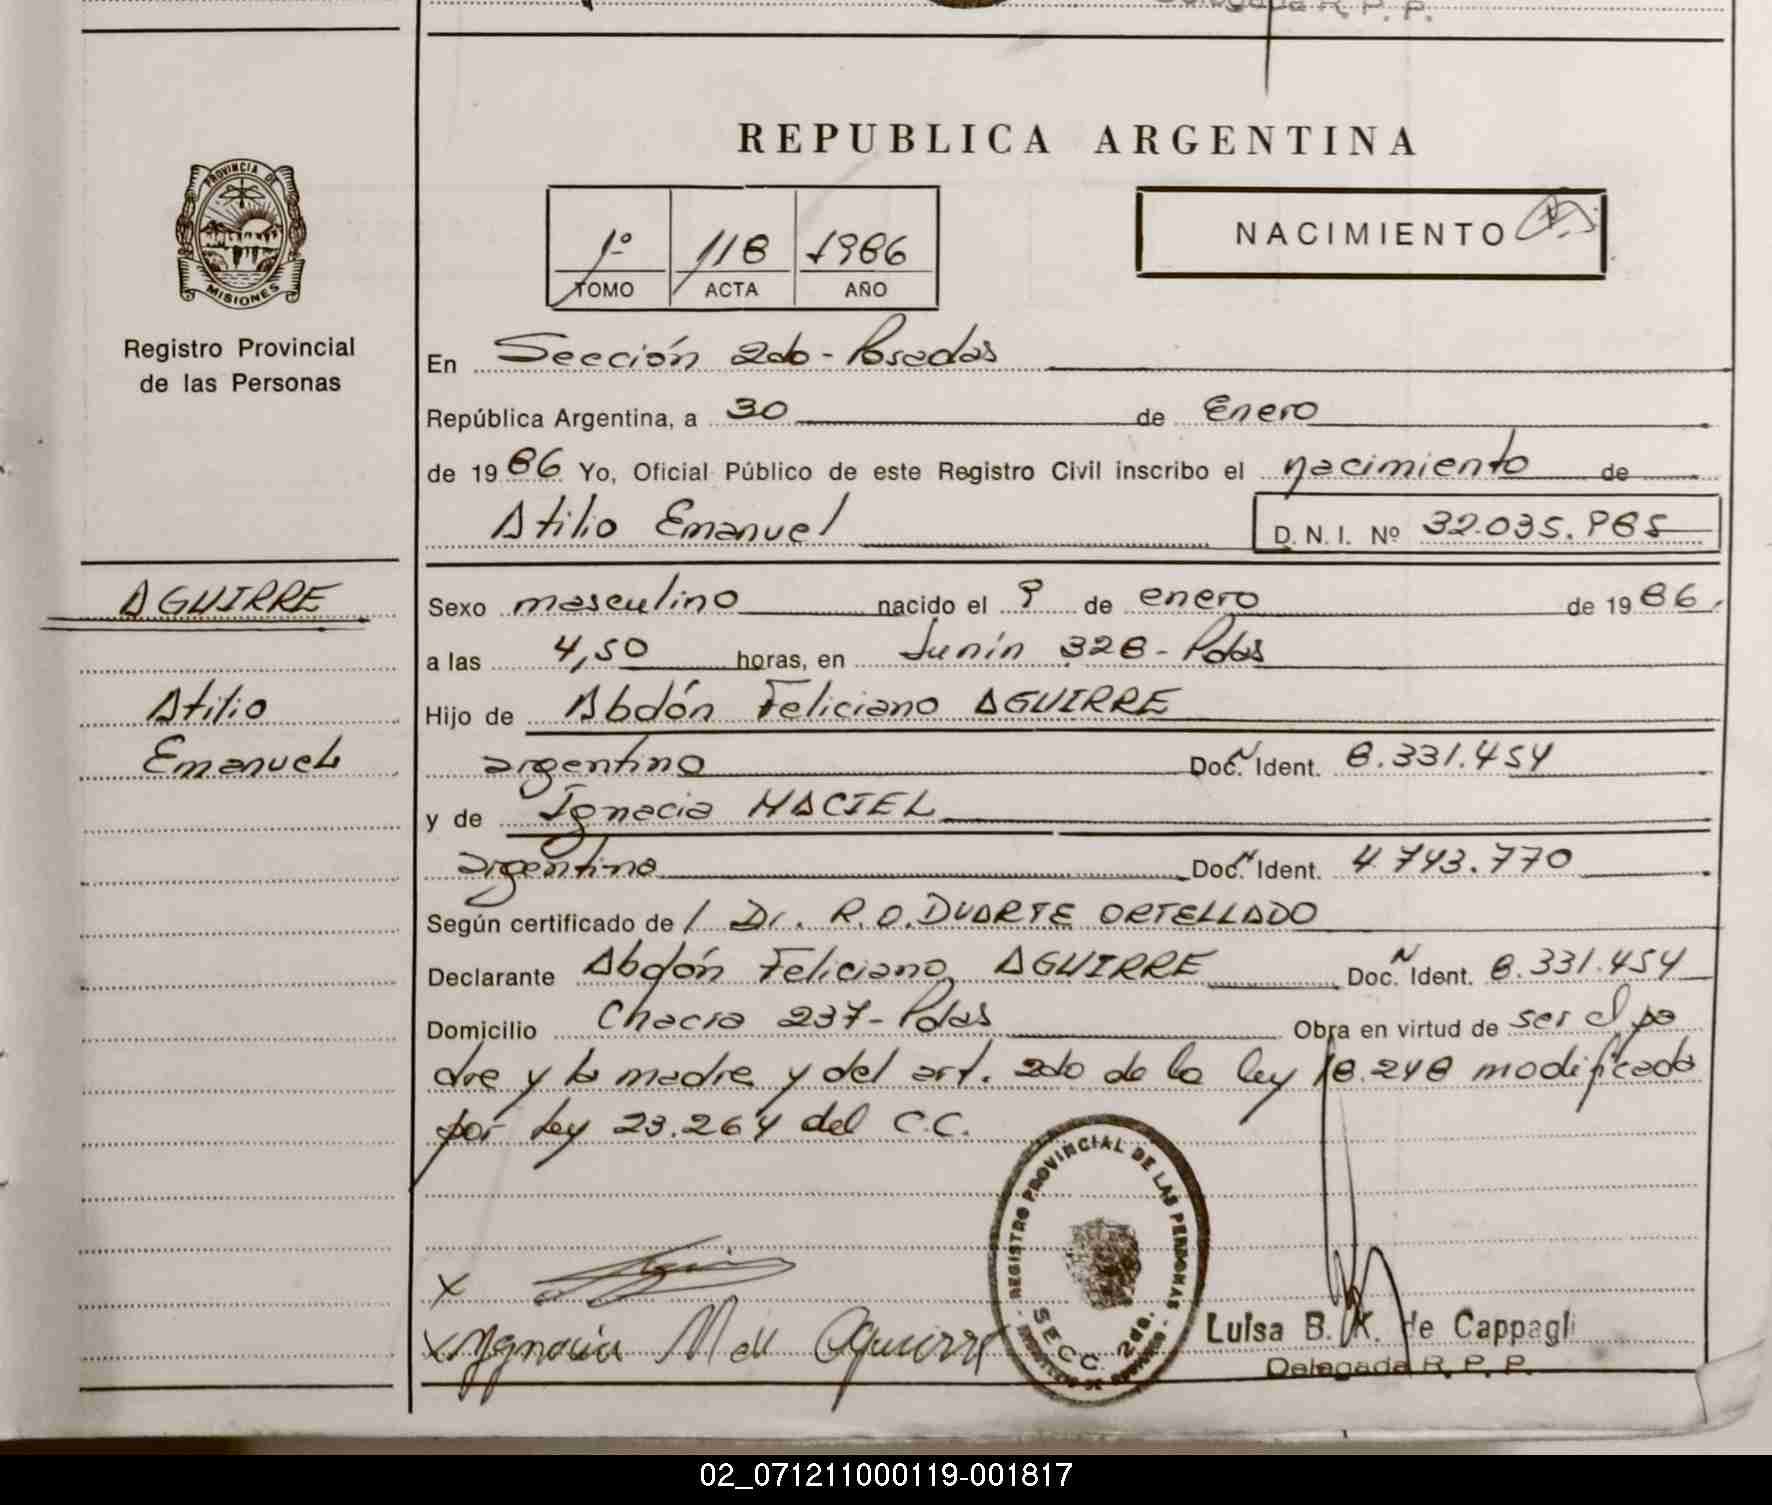 Delegada R. P. P.
REPUBLICA ARGENTINA
PROVINCIA DE
MISIONES
1º 118 1986
TOMO ACTA AÑO
NACIMIENTO
Registro Provincial
de las Personas
En Sección 2da - Posadas
República Argentina, a 30 de Enero
de 1986 Yo, Oficial Público de este Registro Civil inscribo el nacimiento de
Atilio Emanuel D. N. I. Nº 32.035.985
AGUIRRE
Sexo masculino nacido el 9 de enero de 1986.
a las 4,50 horas, en Junín 328 - Pdas
Atilio
Hijo de Abdón Feliciano AGUIRRE
Emanuel
argentino Doc. N Ident. 8.331.454
y de Ignacia MACIEL
argentina Doc. N Ident. 4.743.770
Según certificado de / Dr. R.O. DUARTE ORTELLADO
Declarante Abdón Feliciano AGUIRRE Doc. N Ident. 8.331.454
Domicilio Chacra 237 - Pdas Obra en virtud de ser el pa
dre y la madre y del art. 2do de la ley 18.248 modificada
por ley 23.264 del C.C.
REGISTRO PROVINCIAL DE LAS PERSONAS
SECC. 2da.
x
x Ygnacia M de Aguirre
Luisa B. K. de Cappagli
Delegada R. P. P.
02_071211000119-001817